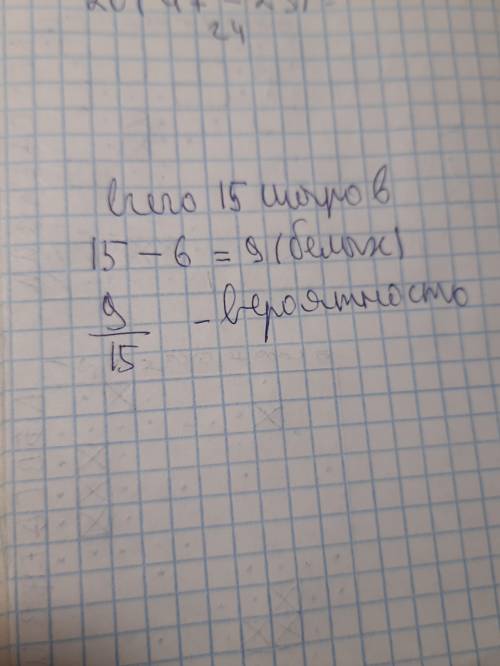 24
всего 15 шаров
15 - 6 = 9 (белых)
9/15 - вероятность